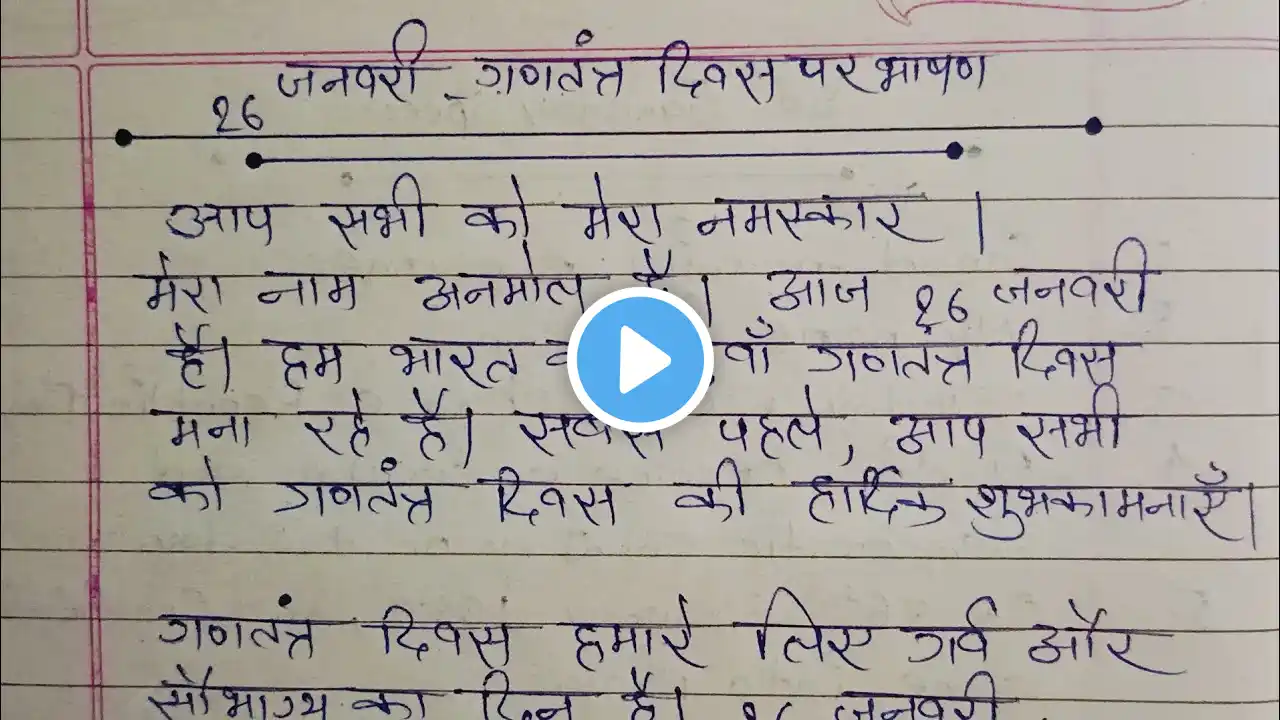 26 जनवरी - गणतंत्र दिवस पर भाषण
आप सभी को मेरा नमस्कार ।
मेरा नाम अनमोल है। आज 26 जनवरी
है। हम भारत वाँ गणतंत्र दिवस
मना रहे है। सबसे पहले, आप सभी
को गणतंत्र दिवस की हार्दिक शुभकामनाएँ।
गणतंत्र दिवस हमारे लिए गर्व और
सौभाग्य का दिन है। 26 जनवरी